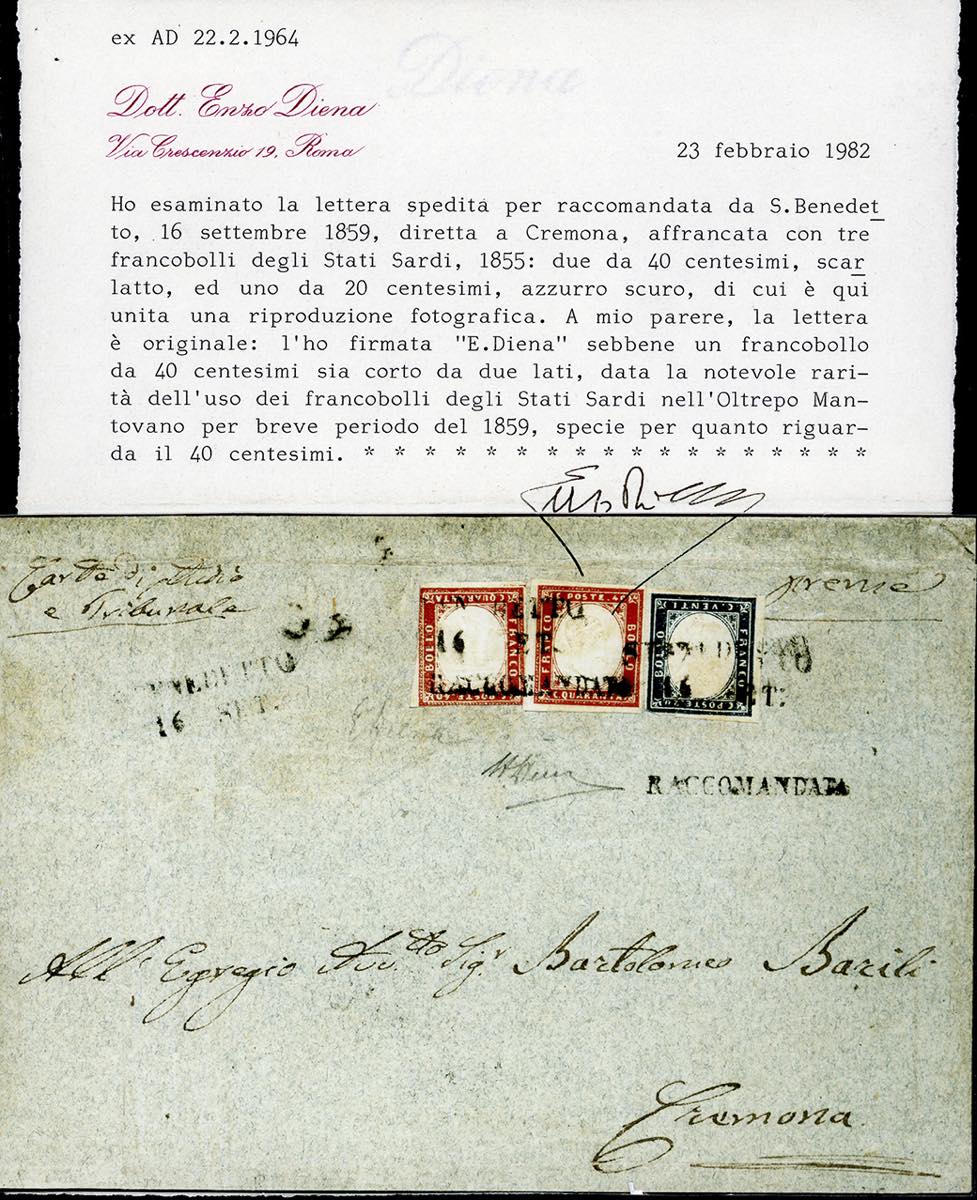 ex AD 22.2.1964
Diena
Dott. Enzo Diena
Via Crescenzio 19, Roma
23 febbraio 1982
Ho esaminato la lettera spedita per raccomandata da S.Benedet
to, 16 settembre 1859, diretta a Cremona, affrancata con tre
francobolli degli Stati Sardi, 1855: due da 40 centesimi, scar
latto, ed uno da 20 centesimi, azzurro scuro, di cui è qui
unita una riproduzione fotografica. A mio parere, la lettera
è originale: l'ho firmata "E.Diena" sebbene un francobollo
da 40 centesimi sia corto da due lati, data la notevole rari-
tà dell'uso dei francobolli degli Stati Sardi nell'Oltrepo Man-
tovano per breve periodo del 1859, specie per quanto riguar-
da il 40 centesimi. * * * * * * * * * * * * * * * * * *
Carte di
e Tribunale
preme
C. QUARANTA
BOLLO
FRANCO
POSTE
C. QUARANTA
BOLLO
FRANCO
C. VENTI
BOLLO
FRANCO
POSTE 20
16 SET.
RACCOMANDATA
16 SET.
RACCOMANDATA
All' Egregio Avv.to Sigr Bartolomeo Barili
Cremona